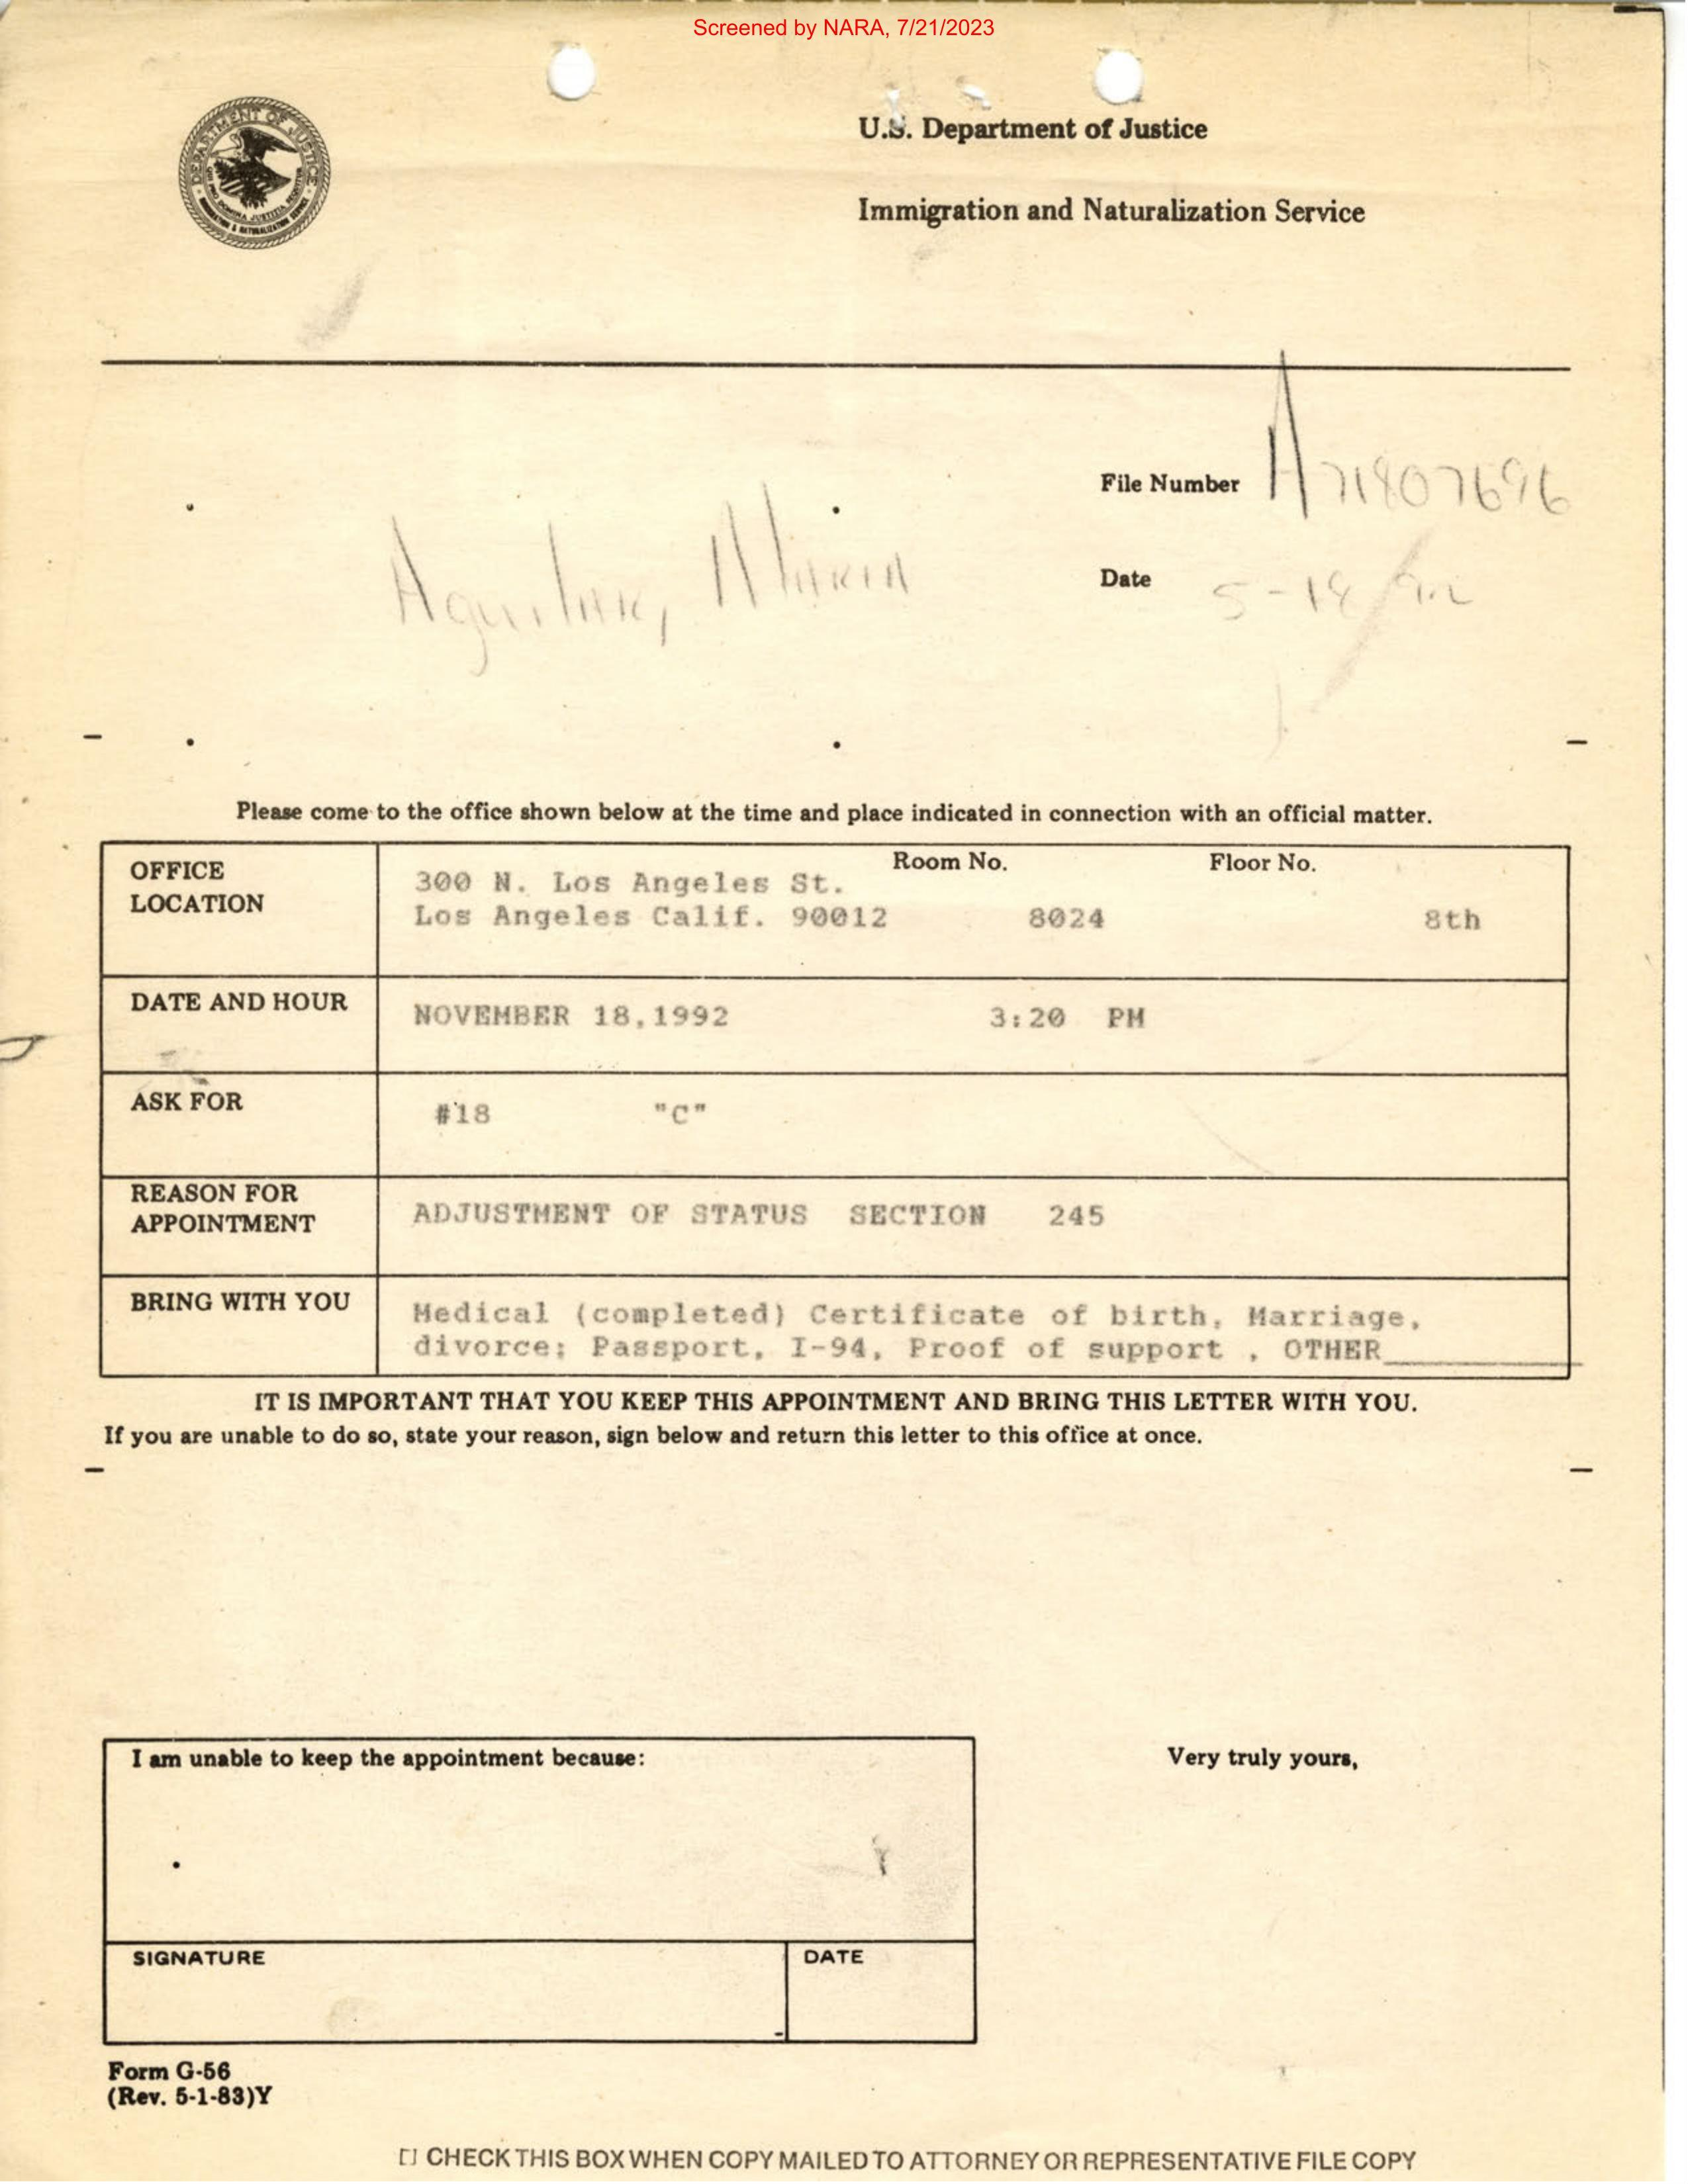 Screened by NARA, 7/21/2023
DEPARTMENT OF JUSTICE
U.S. Department of Justice
Immigration and Naturalization Service
File Number A71807696
Aguilar, Maria
Date 5-18/92
Please come to the office shown below at the time and place indicated in connection with an official matter.
OFFICE LOCATION
Room No. Floor No.
300 N. Los Angeles St.
Los Angeles Calif. 90012 8024 8th
DATE AND HOUR
NOVEMBER 18,1992 3:20 PM
ASK FOR
#18 "C"
REASON FOR
APPOINTMENT
ADJUSTMENT OF STATUS SECTION 245
BRING WITH YOU
Medical (completed) Certificate of birth, Marriage,
divorce; Passport, I-94, Proof of support , OTHER
IT IS IMPORTANT THAT YOU KEEP THIS APPOINTMENT AND BRING THIS LETTER WITH YOU.
If you are unable to do so, state your reason, sign below and return this letter to this office at once.
I am unable to keep the appointment because:
Very truly yours,
SIGNATURE
DATE
Form G-56
(Rev. 5-1-83)Y
[] CHECK THIS BOX WHEN COPY MAILED TO ATTORNEY OR REPRESENTATIVE FILE COPY